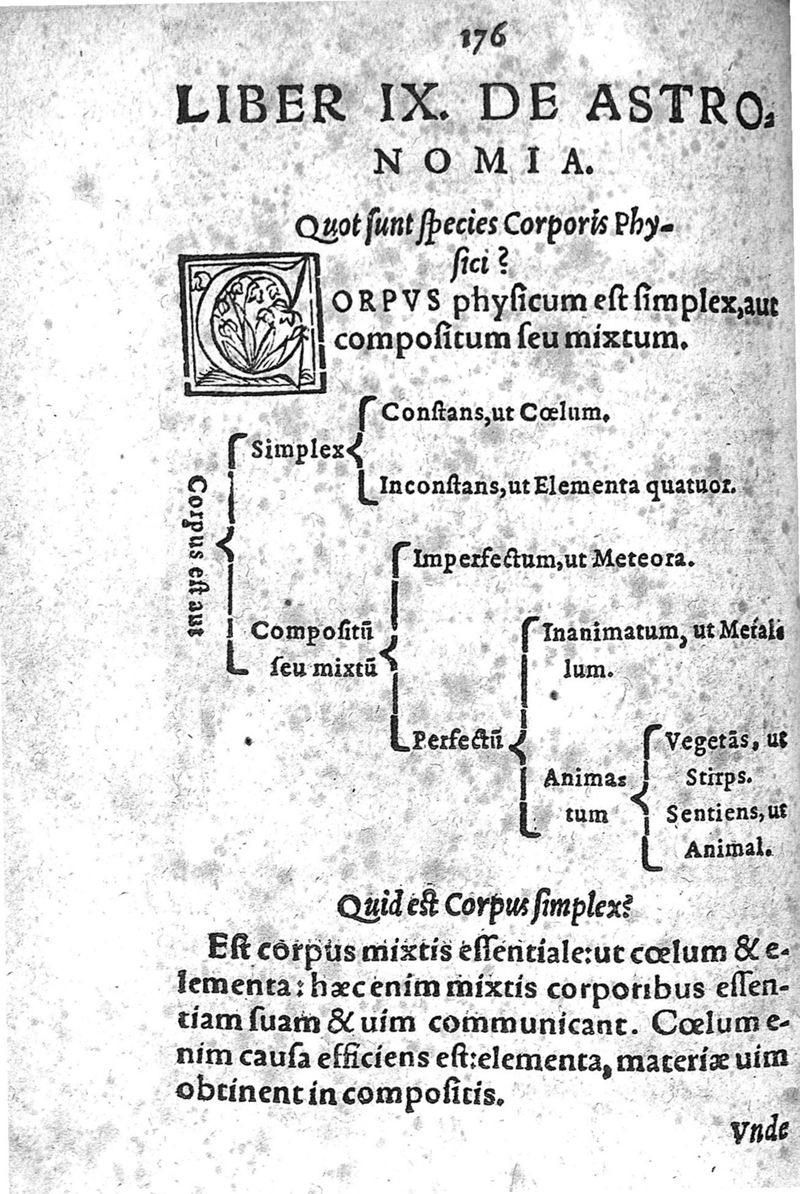 176
LIBER IX. DE ASTRO-
NOMIA.
Quot ſunt ſpecies Corporis Phy-
ſici?
CORPVS phyſicum eſt ſimplex, aut
compoſitum ſeu mixtum.
Corpus eſt aut
Simplex
Conſtans, ut Cœlum.
Inconſtans, ut Elementa quatuor.
Compoſitū
ſeu mixtū
Imperfectum, ut Meteora.
Perfectū
Inanimatum, ut Metal-
lum.
Anima-
tum
Vegetās, ut
Stirps.
Sentiens, ut
Animal.
Quid eſt Corpus ſimplex?
Eſt corpus mixtis eſſentiale: ut cœlum & e-
lementa: hæc enim mixtis corporibus eſſen-
tiam ſuam & uim communicant. Cœlum e-
nim cauſa efficiens eſt: elementa, materiæ uim
obtinent in compoſitis.
Vnde